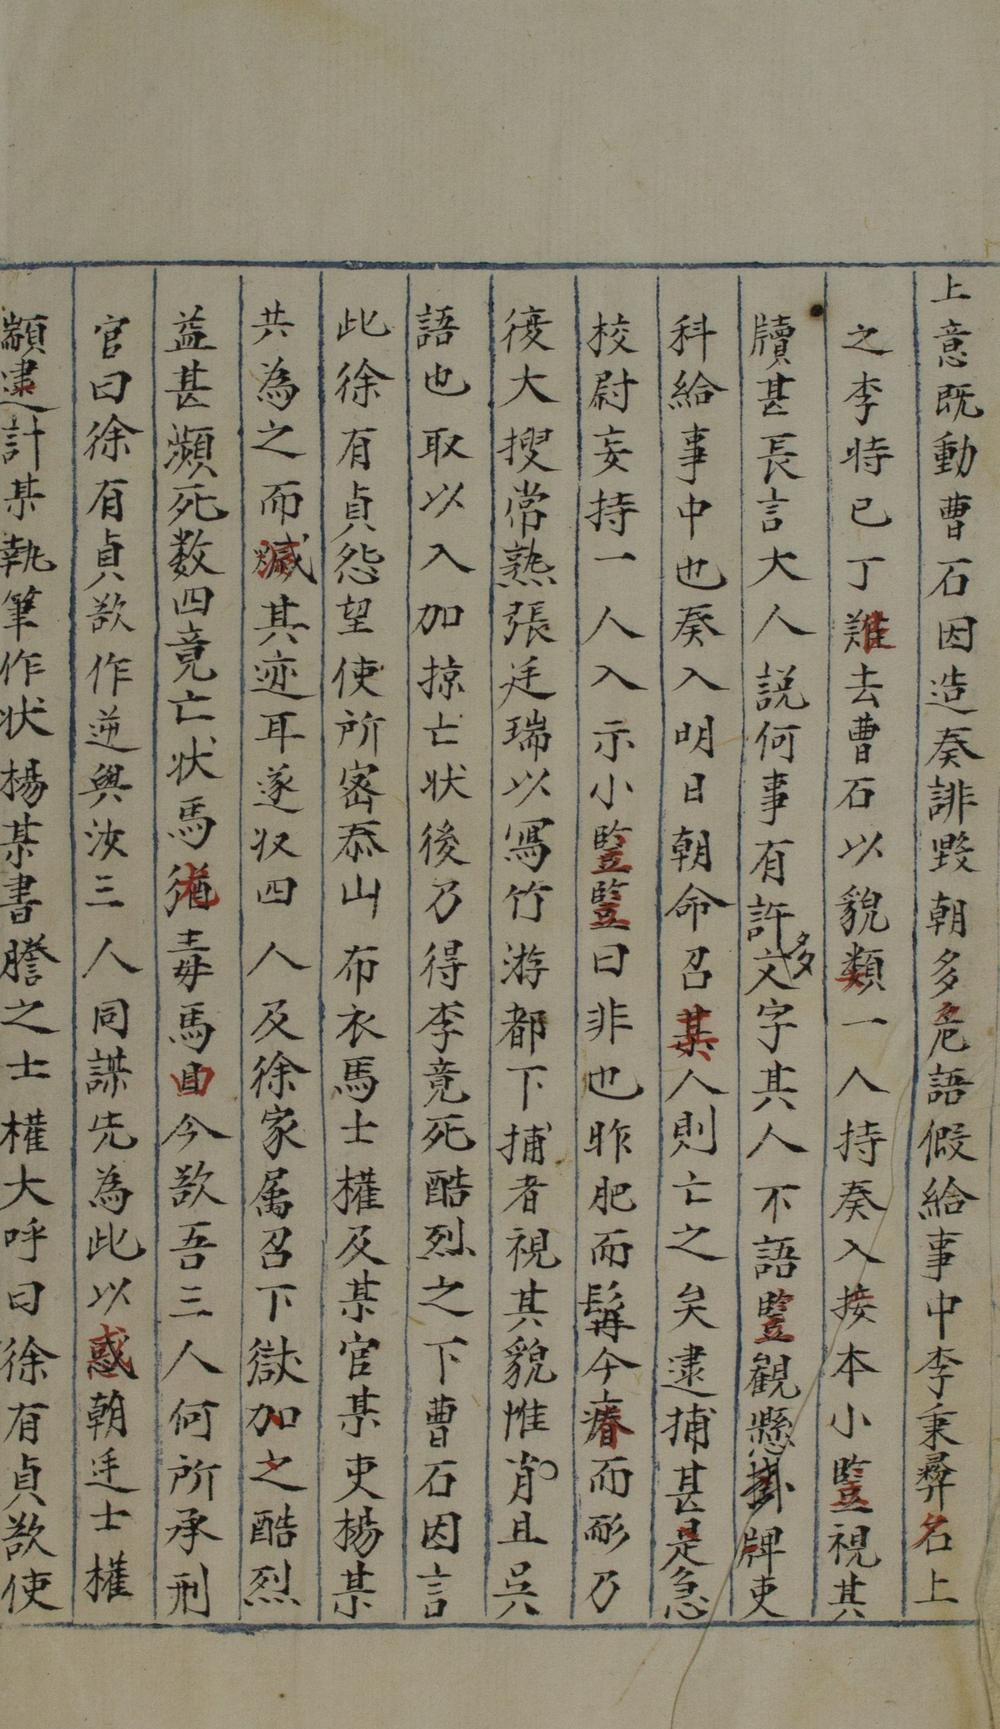 上意既動曹石因造奏誹毀朝多危語假給事中李秉彝名上
之李時已丁難去曹石以貌類一人持奏入接本小豎視其
牘甚長言大人說何事有許多文字其人不語豎觀懸掛牌吏
科給事中也奏入明日朝命召某人則亡之矣逮捕甚是急
校尉妄持一人入示小豎豎曰非也昨肥而髯今瘠而形乃
復大搜常熟張廷瑞以寫竹游都下捕者視其貌惟肖且吳
語也取以入加掠亡狀後乃得李竟死酷烈之下曹石因言
此徐有貞怨望使所客泰山布衣馬士權及某官某吏楊某
共為之而緘其迹耳遂収四人及徐家属召下獄加之酷烈
益甚瀕死数四竟亡状馬猶毒馬曰今欲吾三人何所承刑
官曰徐有貞欲作逆與汝三人同謀先為此以惑朝廷士權
顓逮計某執筆作状楊某書謄之士權大呼曰徐有貞欲使